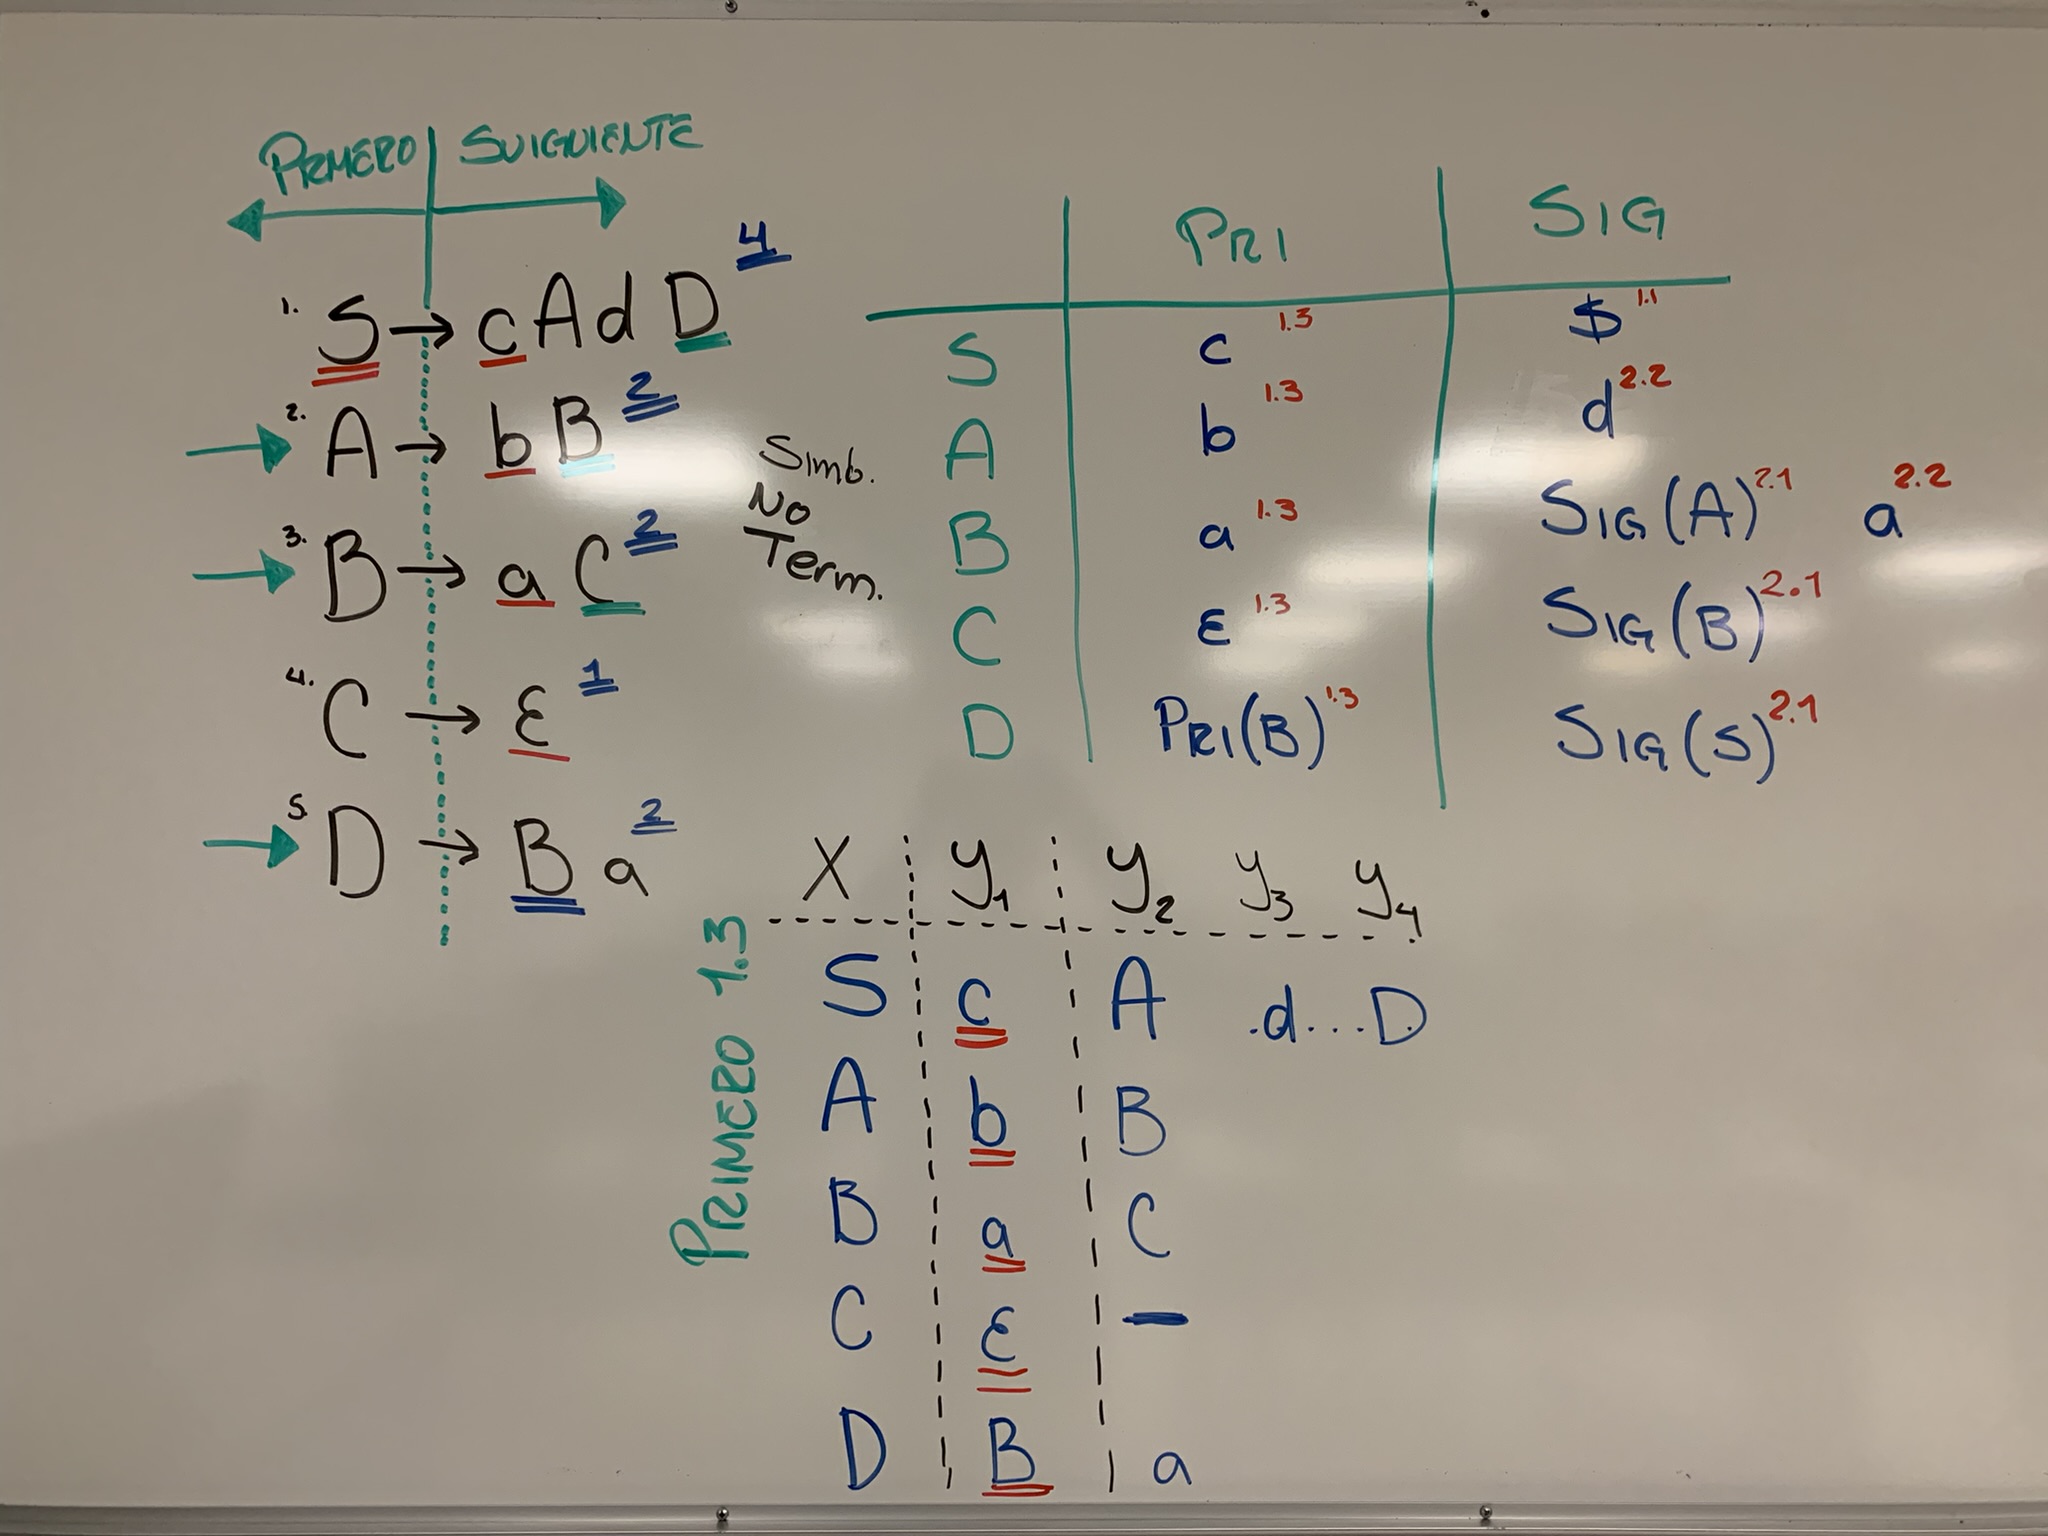 PRMERO | SUIGNIENTE
1. S → c A d D 4
2. A → b B 2
3. B → a C 2
4. C → ε 1
5. D → B a 2
Simb.
No
Term.
PRI SIG
S c 1.3 $ 1.1
A b 1.3 d 2.2
B a 1.3 SIG(A) 2.1 a 2.2
C ε 1.3 SIG(B) 2.1
D PRI(B) 1.3 SIG(S) 2.1
PRIMERO 1.3
X y1 y2 y3 y4
S c A .d...D
A b B
B a C
C ε –
D B a